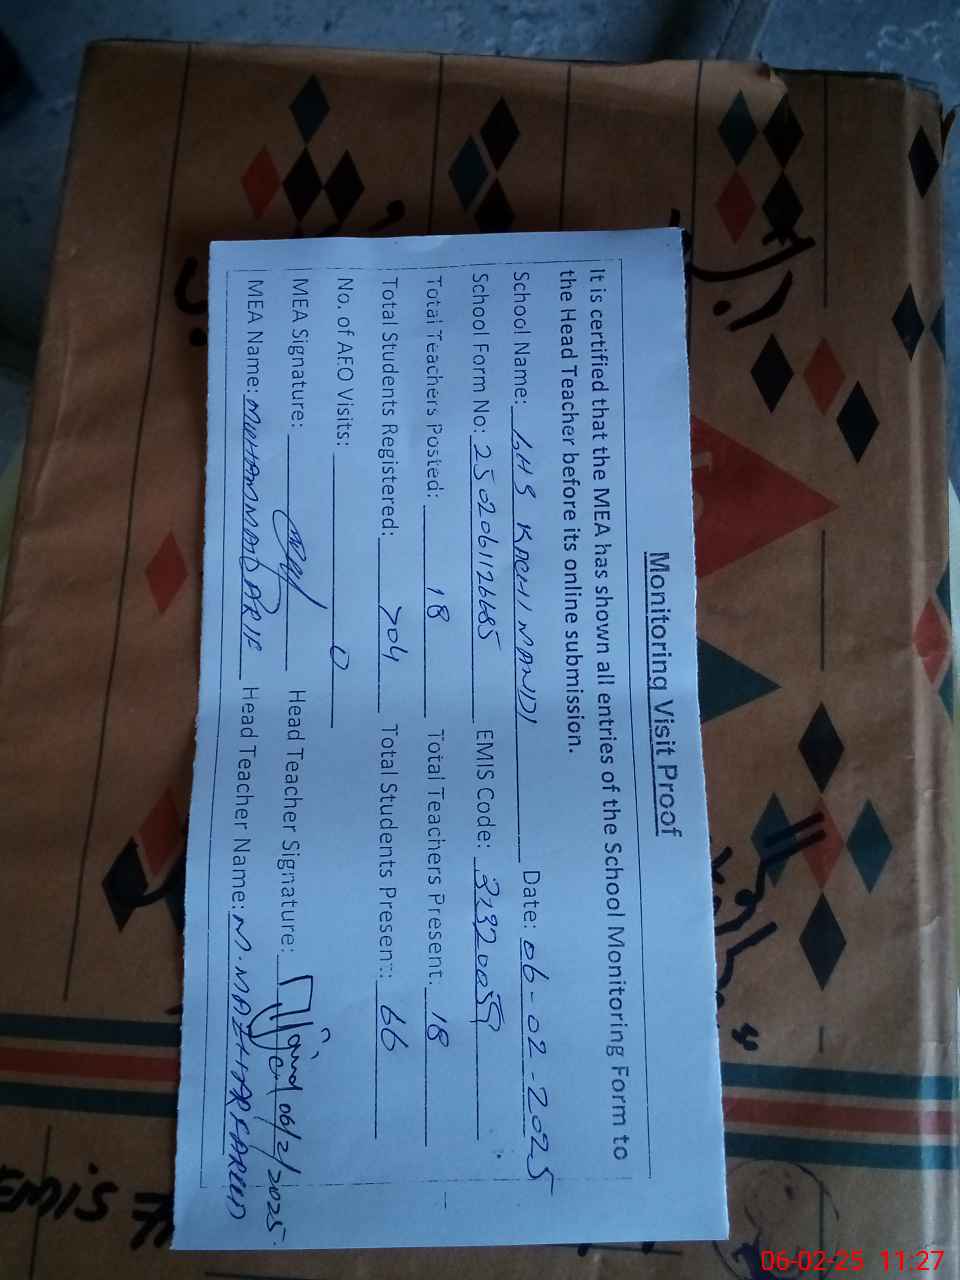 Monitoring Visit Proof
It is certified that the MEA has shown all entries of the School Monitoring Form to
the Head Teacher before its online submission.
School Name: GHS KACHI MANDI Date: 06-02-2025
School Form No: EMIS Code:
Total Teachers Posted: 18 Total Teachers Present: 18
Total Students Registered: 704 Total Students Present: 66
No. of AEO Visits: 0
MEA Signature: Head Teacher Signature: 06/2/2025
MEA Name: MUHAMMAD ARIF Head Teacher Name: M. MAZHAR FAREED
06-02-25 11:27